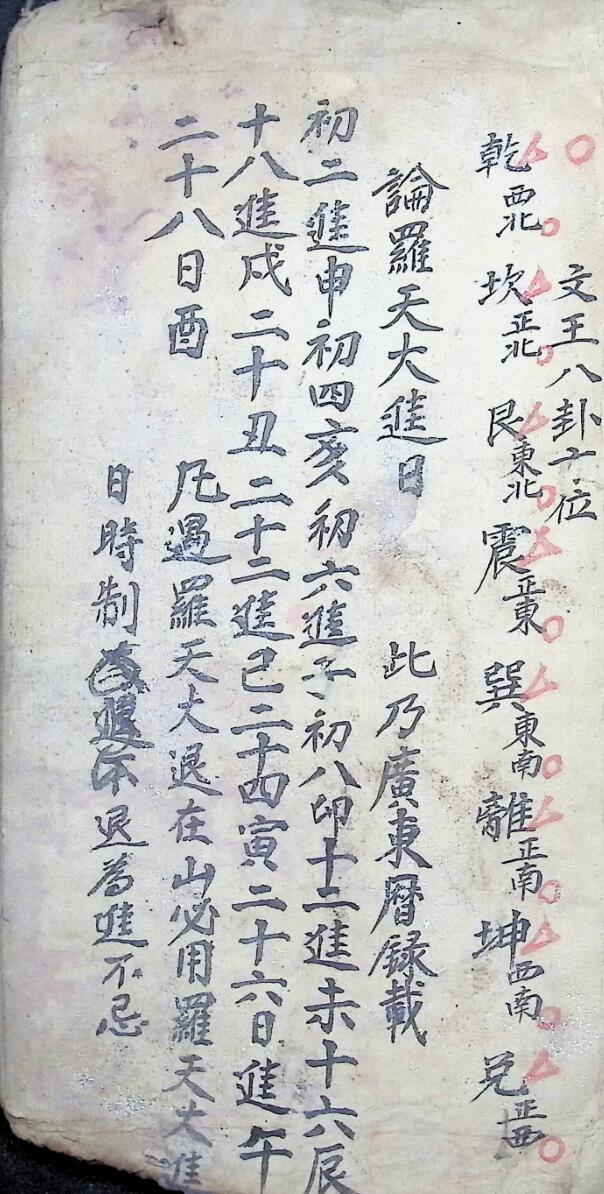 文王八卦十位
乾西北 坎正北 艮東北 震正東 巽東南 離正南 坤西南 兌正西
論羅天大進日 此乃廣東曆錄載
初二進申初四亥初六進子初八卯十二進未十六辰
十八進戌二十丑二十二進巳二十四寅二十六日進午
二十八日酉
凡遇羅天大退在山必用羅天大進
日時制退為進不忌